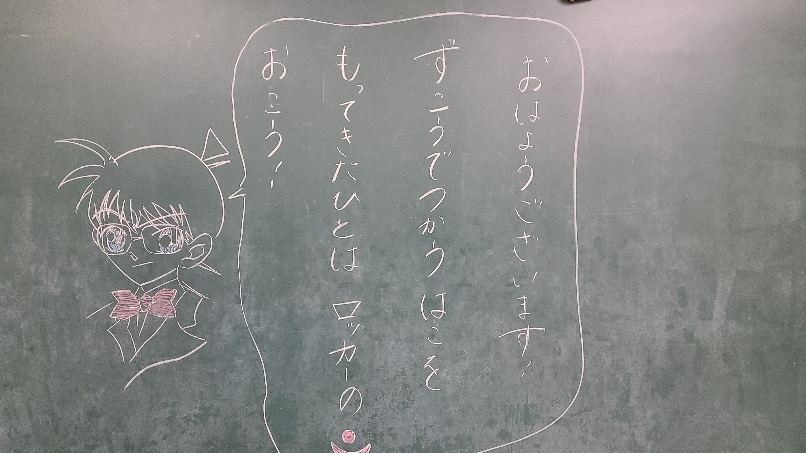 おはようございます!
ずこうでつかうはこを
もってきたひとは ロッカーの
おこう!